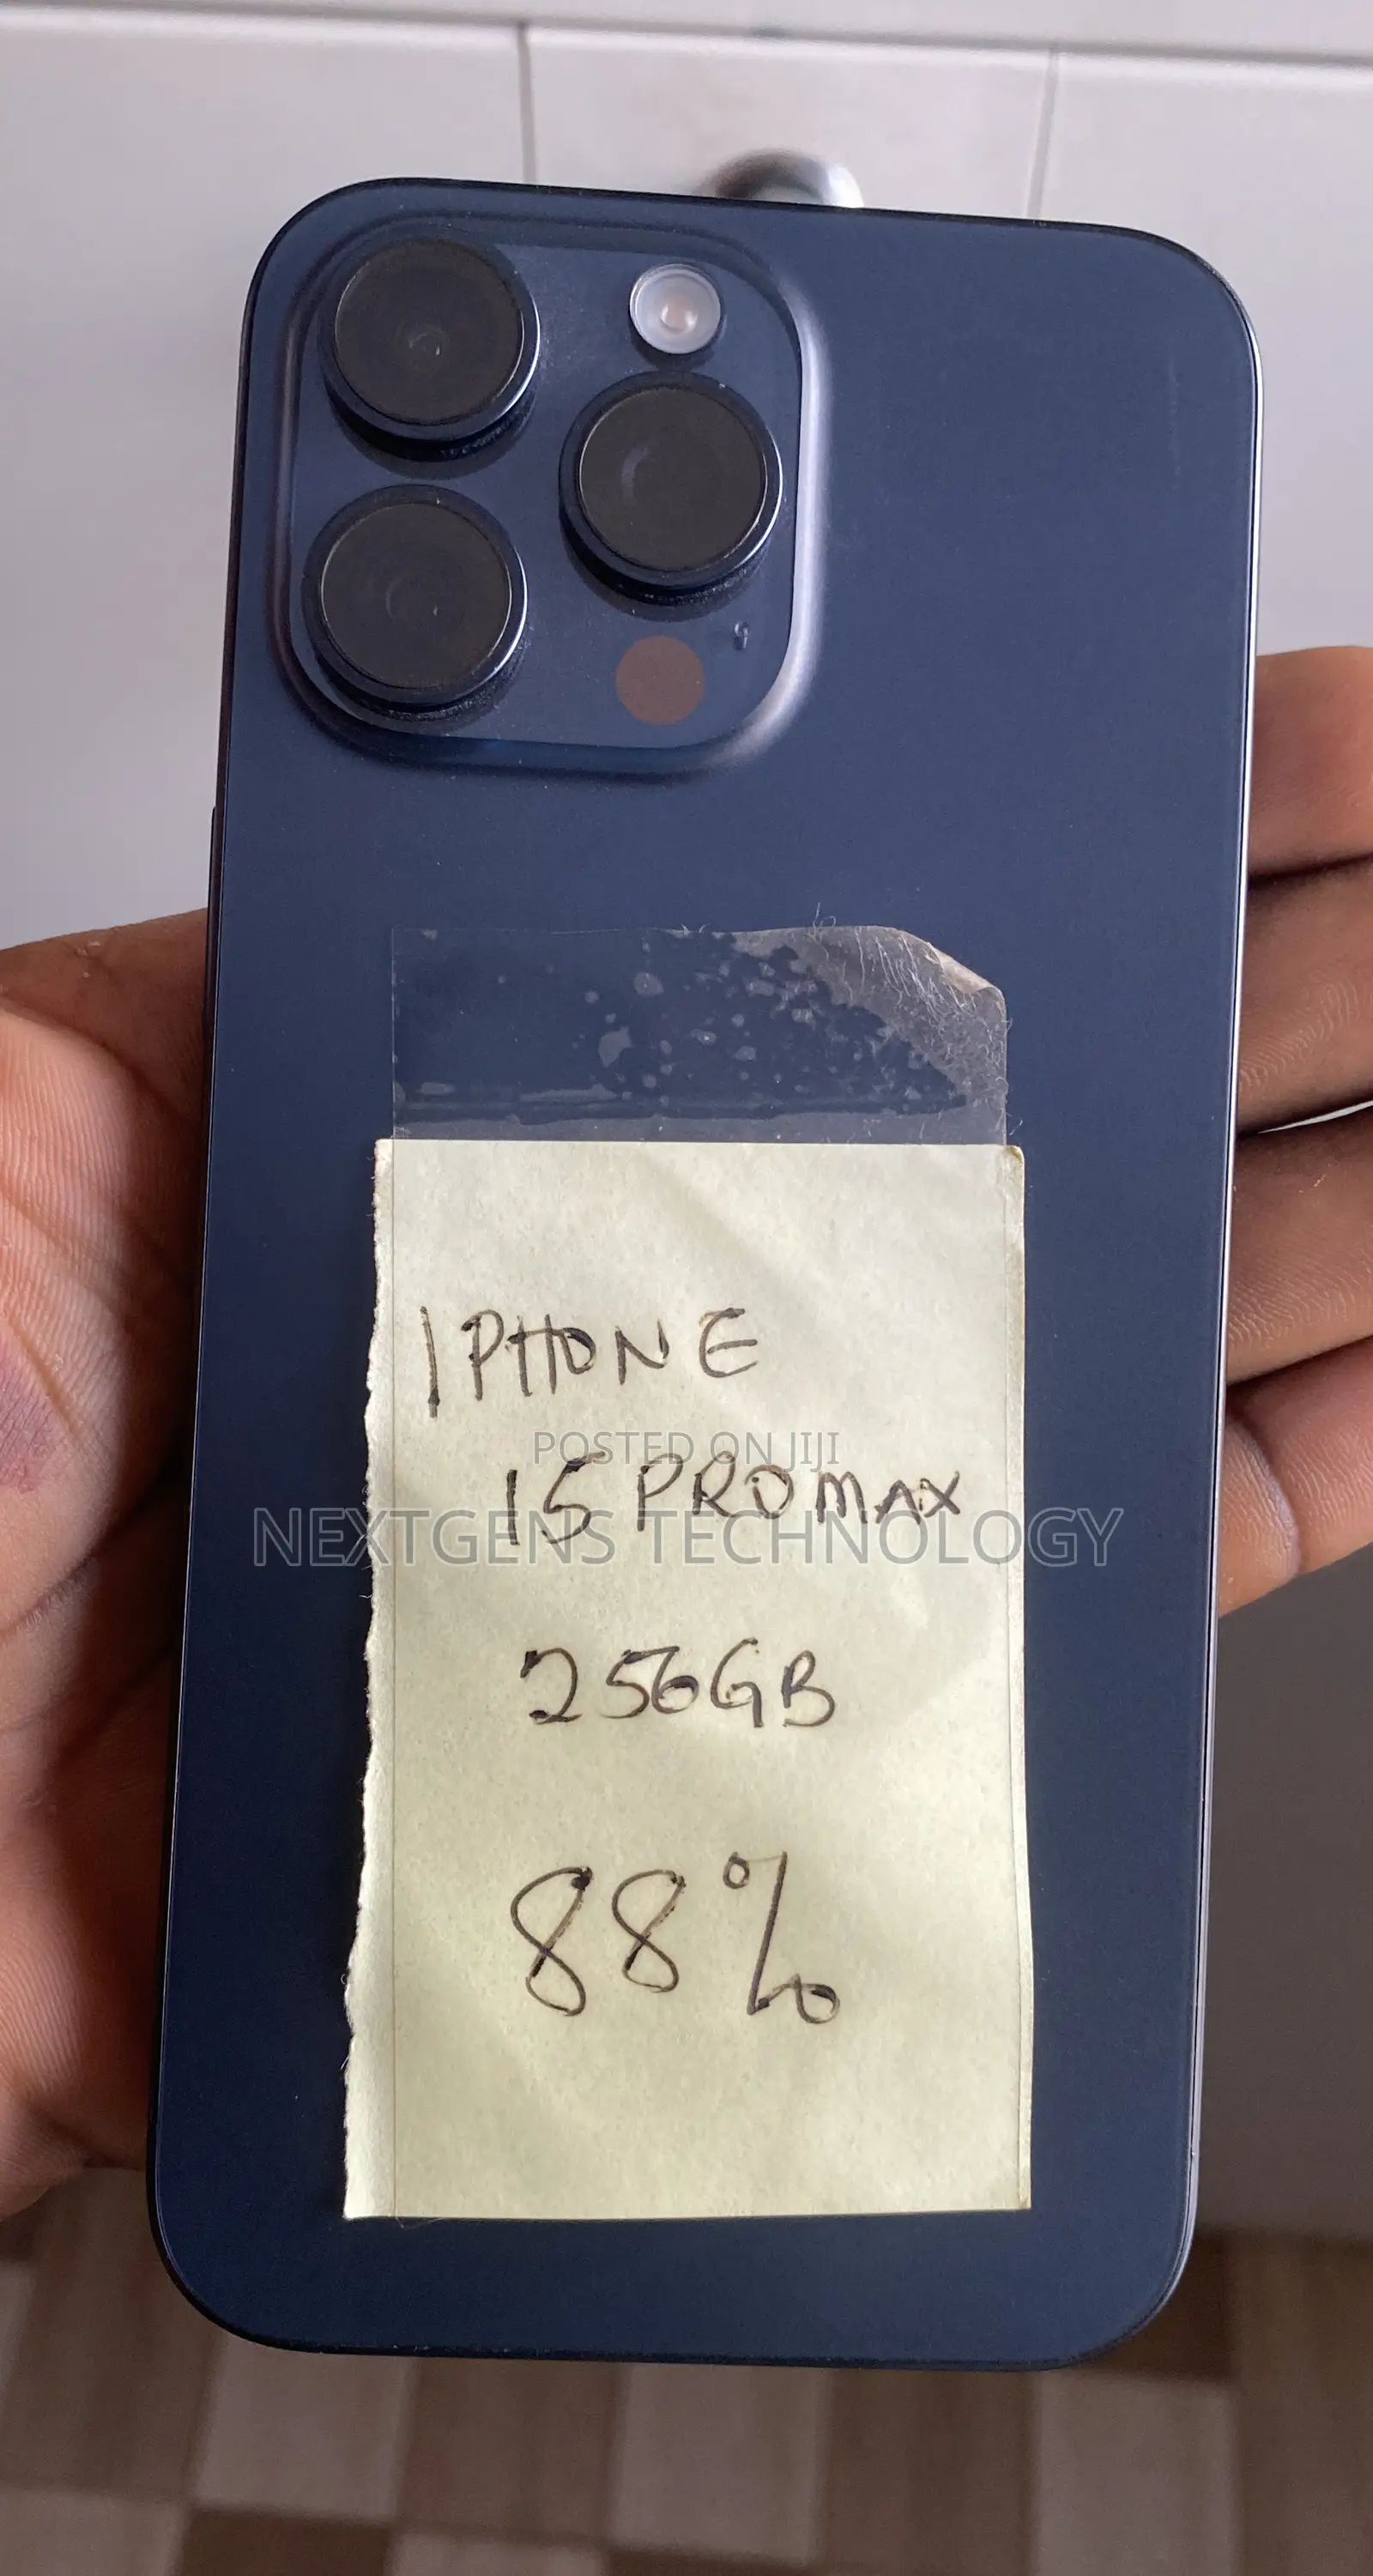 IPHONE
POSTED ON JIJI
15 PRO MAX
NEXTGENS TECHNOLOGY
256GB
88%